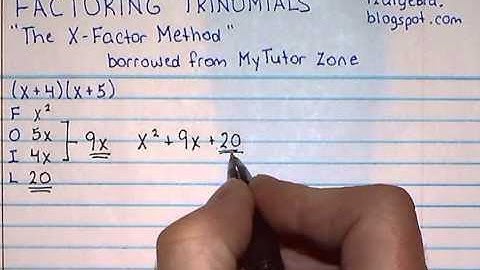 FACTORING TRINOMIALS
"The X-Factor Method"
blogspot.com
borrowed from MyTutor Zone
(x+4)(x+5)
F x²
O 5x
I 4x
9x
L 20
x² + 9x + 20